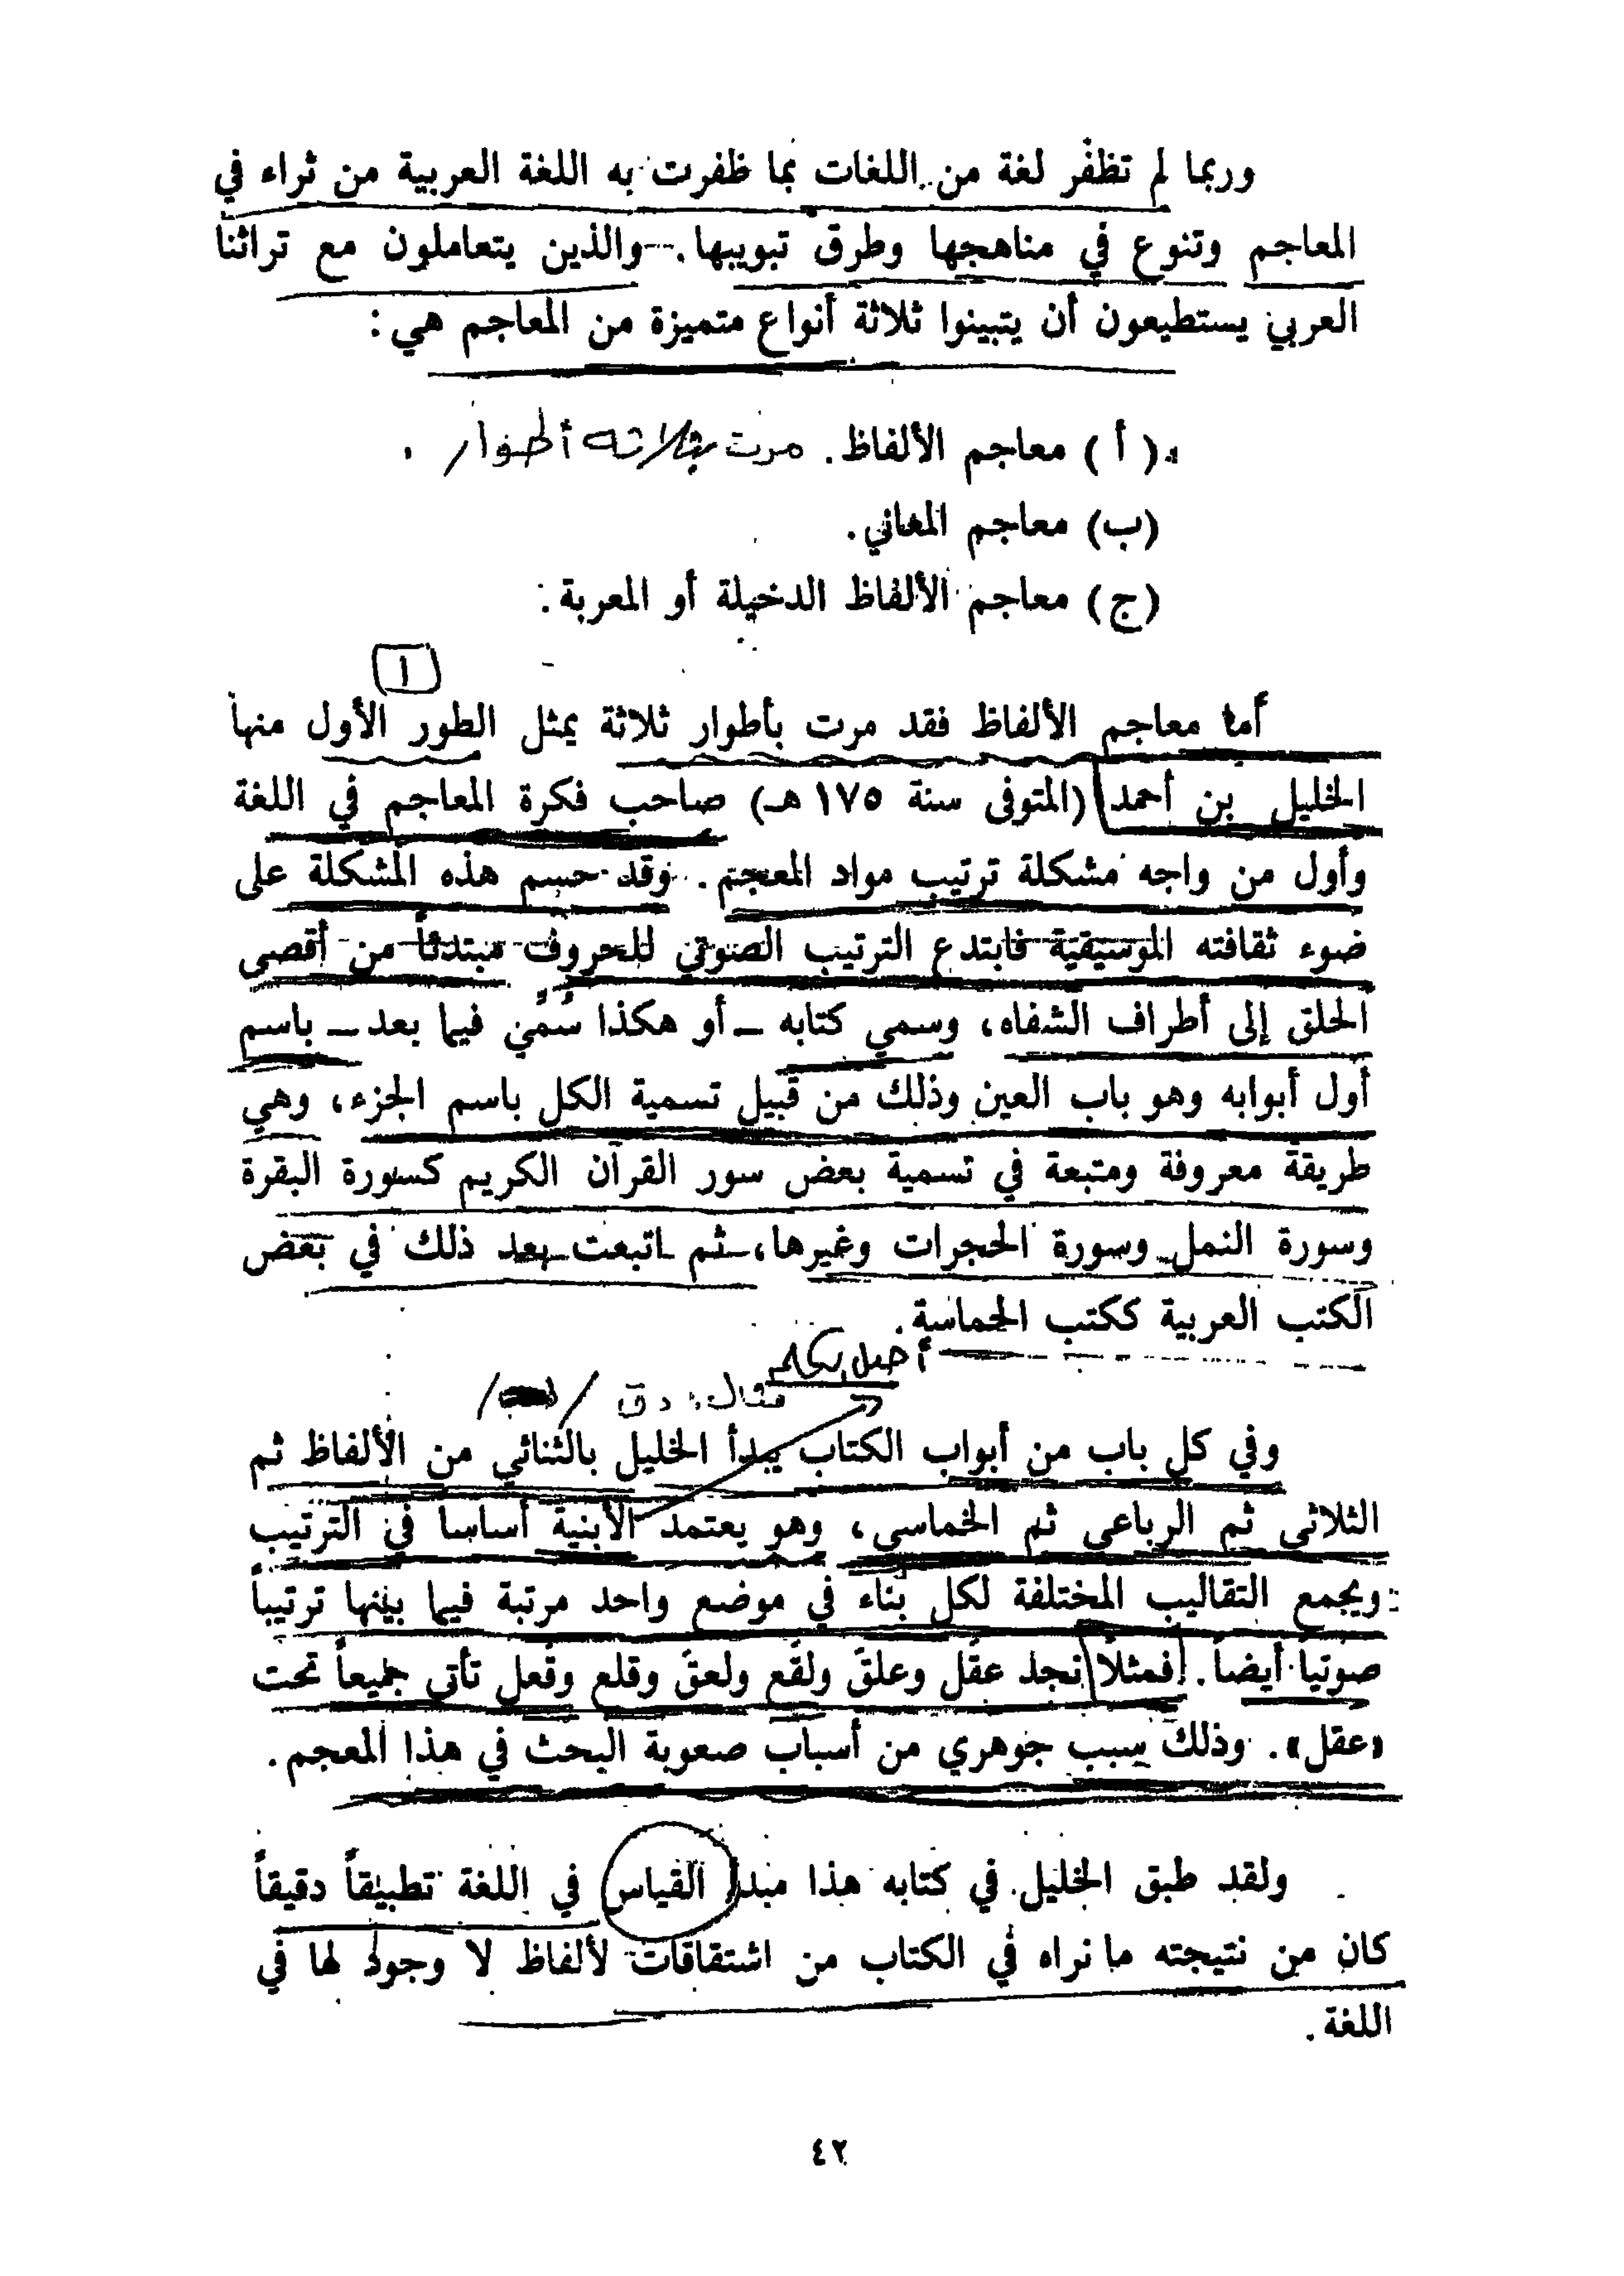 وربما لم تظفر لغة من اللغات بما ظفرت به اللغة العربية من ثراء في
المعاجم وتنوع في مناهجها وطرق تبويبها. والذين يتعاملون مع تراثنا
العربي يستطيعون أن يتبينوا ثلاثة أنواع متميزة من المعاجم هي :
( أ ) معاجم الألفاظ. مرت بثلاثه أطوار .
(ب) معاجم المعاني.
(ج) معاجم الألفاظ الدخيلة أو المعربة :
١
أما معاجم الألفاظ فقد مرت بأطوار ثلاثة يمثل الطور الأول منها
الخليل بن أحمد (المتوفى سنة ١٧٥ هـ) صاحب فكرة المعاجم في اللغة
وأول من واجه مشكلة ترتيب مواد المعجم. وقد حسم هذه المشكلة على
ضوء ثقافته الموسيقية فابتدع الترتيب الصوتي للحروف مبتدئاً من أقصى
الحلق إلى أطراف الشفاه، وسمي كتابه ـ أو هكذا سُمِّي فيما بعد ـ باسم
أول أبوابه وهو باب العين وذلك من قبيل تسمية الكل باسم الجزء، وهي
طريقة معروفة ومتبعة في تسمية بعض سور القرآن الكريم كسورة البقرة
وسورة النمل وسورة الحجرات وغيرها، ثم اتبعت بعد ذلك في بعض
الكتب العربية ككتب الحماسة.
أصل الكلمة
مثال: دق / /
وفي كل باب من أبواب الكتاب يبدأ الخليل بالثنائي من الألفاظ ثم
الثلاثي ثم الرباعي ثم الخماسي، وهو يعتمد الأبنية أساسا في الترتيب
ويجمع التقاليب المختلفة لكل بناء في موضع واحد مرتبة فيما بينها ترتيباً
صوتياً أيضاً. فمثلاً نجد عقَل وعلقَ ولقَع ولعقَ وقلع وقَعل تأتي جميعاً تحت
«عقل». وذلك سبب جوهري من أسباب صعوبة البحث في هذا المعجم.
ولقد طبق الخليل في كتابه هذا مبدأ القياس في اللغة تطبيقاً دقيقاً
كان من نتيجته ما نراه في الكتاب من اشتقاقات لألفاظ لا وجود لها في
اللغة.
٤٢